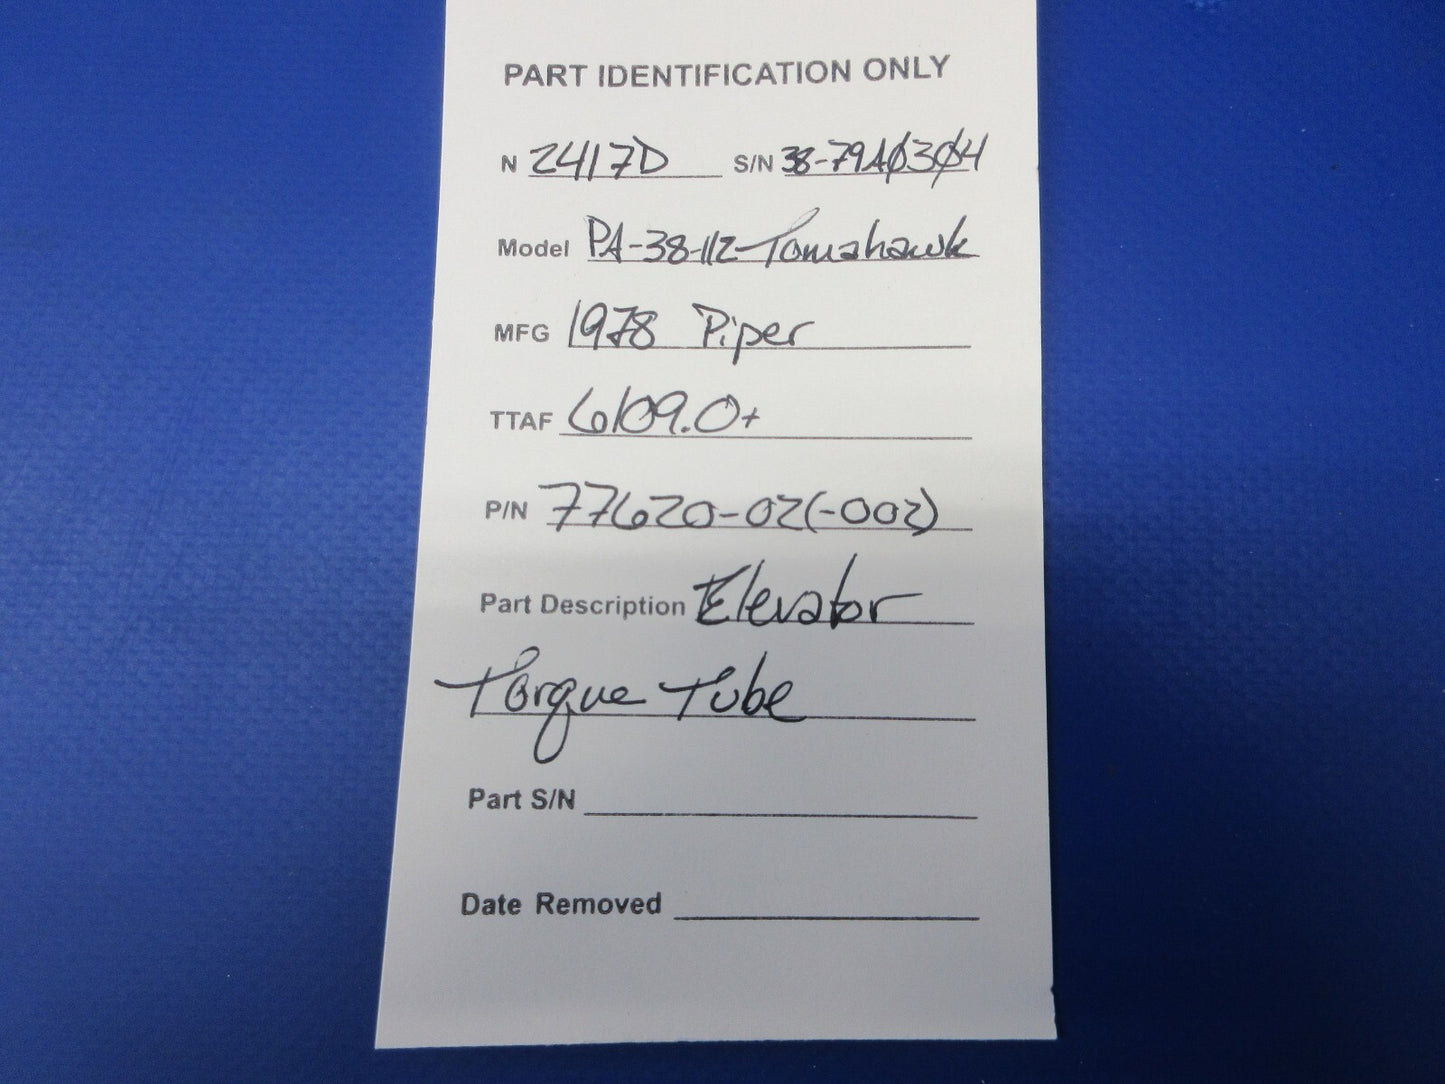 PART IDENTIFICATION ONLY
N 2417D S/N 38-79A0304
Model PA-38-112 Tomahawk
MFG 1978 Piper
TTAF 6109.0+
P/N 77620-02(-002)
Part Description Elevator
Torque Tube
Part S/N
Date Removed